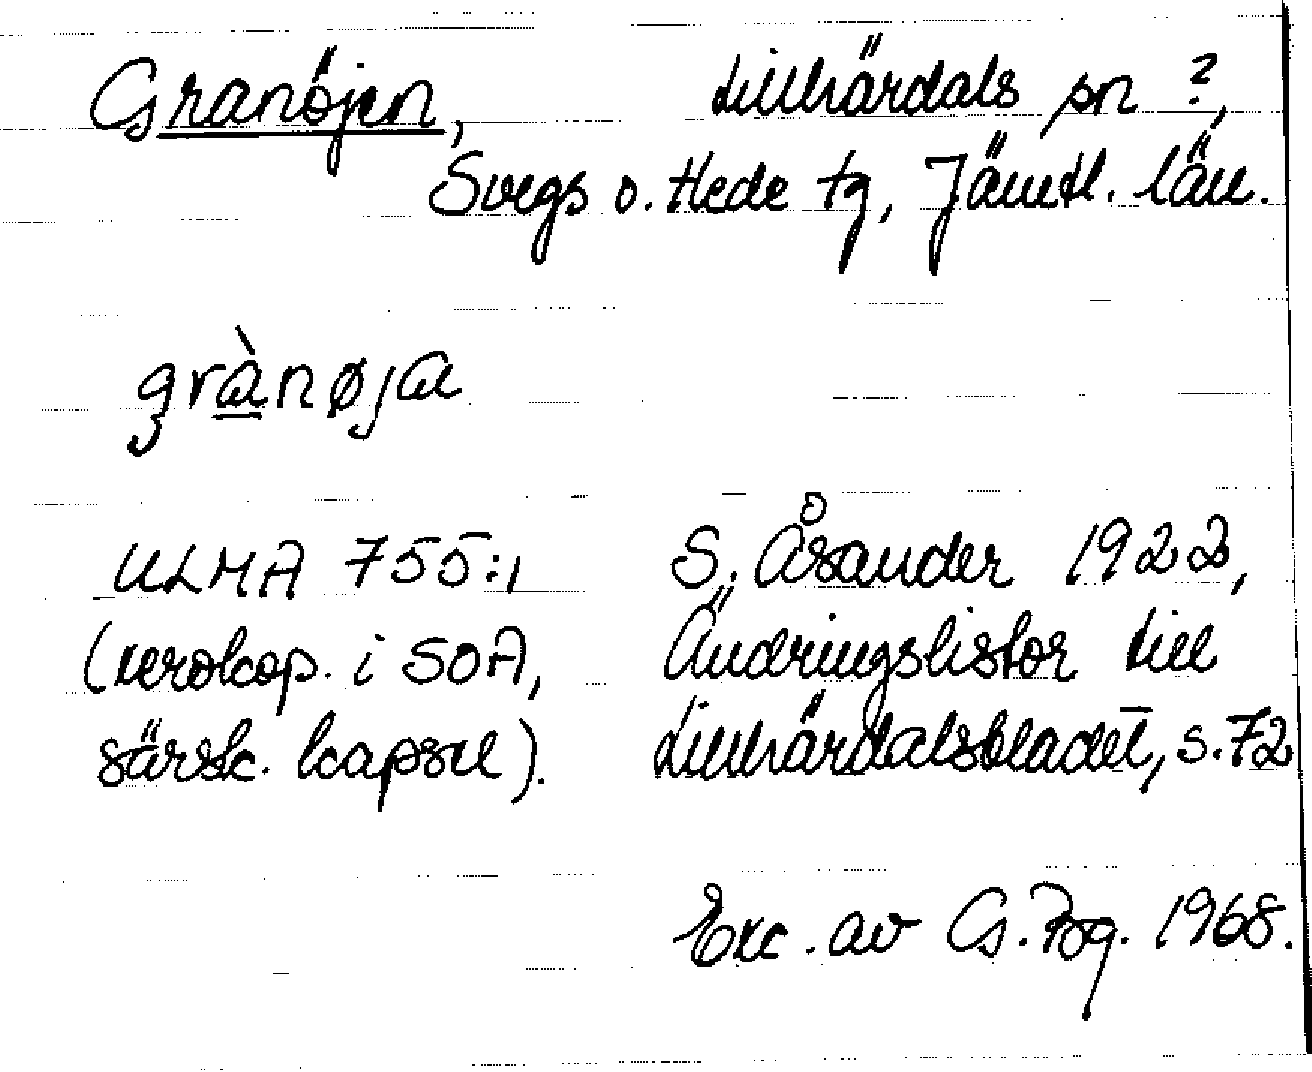 Granöjen, Lillhärdals sn ?,
Svegs o. Hede tg, Jämtl. län.
grànøja
ULMA 755:1 S. Åsander 1922,
(xerokop. i SOA, Ändringslistor till
särsk. kapsel). Lillhärdalsbladet, s. 72
Exc. av G. Bg. 1968.